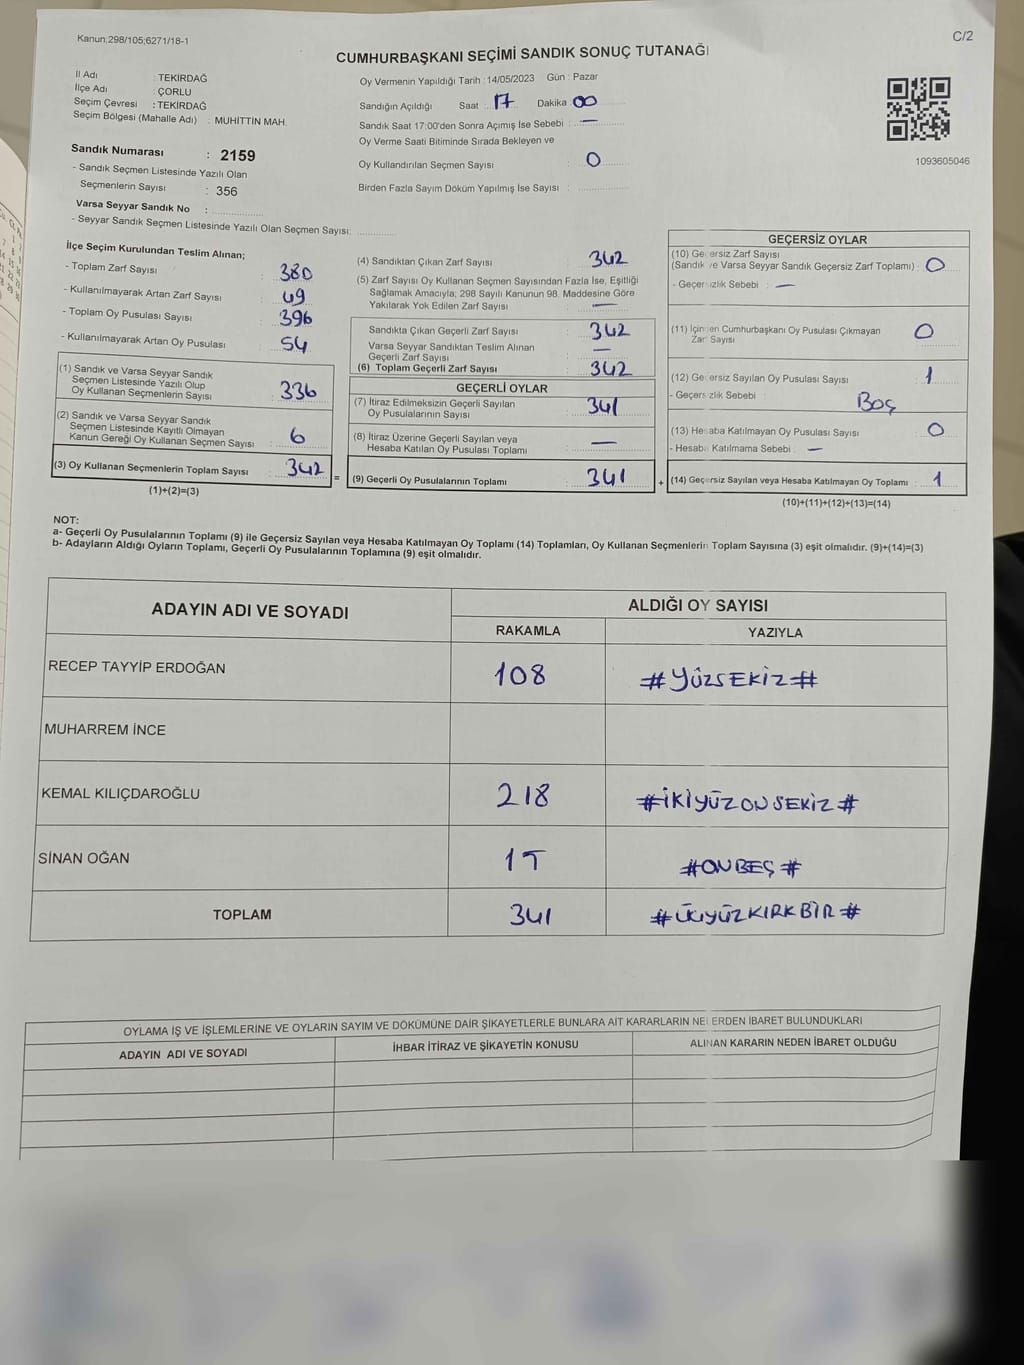 Kanun;298/105;6271/18-1
C/2
CUMHURBAŞKANI SEÇİMİ SANDIK SONUÇ TUTANAĞI
İl Adı : TEKİRDAĞ
İlçe Adı : ÇORLU
Seçim Çevresi : TEKİRDAĞ
Seçim Bölgesi (Mahalle Adı) : MUHİTTİN MAH.
Sandık Numarası : 2159
- Sandık Seçmen Listesinde Yazılı Olan
Seçmenlerin Sayısı : 356
Varsa Seyyar Sandık No :
- Seyyar Sandık Seçmen Listesinde Yazılı Olan Seçmen Sayısı:
Oy Vermenin Yapıldığı Tarih : 14/05/2023 Gün : Pazar
Sandığın Açıldığı Saat : 17 Dakika : 00
Sandık Saat 17:00'den Sonra Açımış İse Sebebi : —
Oy Verme Saati Bitiminde Sırada Bekleyen ve
Oy Kullandırılan Seçmen Sayısı : 0
Birden Fazla Sayım Döküm Yapılmış İse Sayısı :
1093605046
İlçe Seçim Kurulundan Teslim Alınan;
- Toplam Zarf Sayısı : 380
- Kullanılmayarak Artan Zarf Sayısı : 49
- Toplam Oy Pusulası Sayısı : 396
- Kullanılmayarak Artan Oy Pusulası : 54
(1) Sandık ve Varsa Seyyar Sandık
Seçmen Listesinde Yazılı Olup
Oy Kullanan Seçmenlerin Sayısı : 336
(2) Sandık ve Varsa Seyyar Sandık
Seçmen Listesinde Kayıtlı Olmayan
Kanun Gereği Oy Kullanan Seçmen Sayısı : 6
(3) Oy Kullanan Seçmenlerin Toplam Sayısı : 342
(1)+(2)=(3)
=
(4) Sandıktan Çıkan Zarf Sayısı : 342
(5) Zarf Sayısı Oy Kullanan Seçmen Sayısından Fazla İse, Eşitliği
Sağlamak Amacıyla; 298 Sayılı Kanunun 98. Maddesine Göre
Yakılarak Yok Edilen Zarf Sayısı : —
Sandıkta Çıkan Geçerli Zarf Sayısı : 342
Varsa Seyyar Sandıktan Teslim Alınan
Geçerli Zarf Sayısı : —
(6) Toplam Geçerli Zarf Sayısı : 342
GEÇERLİ OYLAR
(7) İtiraz Edilmeksizin Geçerli Sayılan
Oy Pusulalarının Sayısı : 341
(8) İtiraz Üzerine Geçerli Sayılan veya
Hesaba Katılan Oy Pusulası Toplamı : —
(9) Geçerli Oy Pusulalarının Toplamı : 341
+
GEÇERSİZ OYLAR
(10) Geçersiz Zarf Sayısı
(Sandık ve Varsa Seyyar Sandık Geçersiz Zarf Toplamı) : 0
- Geçersizlik Sebebi : —
(11) İçinden Cumhurbaşkanı Oy Pusulası Çıkmayan
Zarf Sayısı : 0
(12) Geçersiz Sayılan Oy Pusulası Sayısı : 1
- Geçersizlik Sebebi : Boş
(13) Hesaba Katılmayan Oy Pusulası Sayısı : 0
- Hesaba Katılmama Sebebi : —
(14) Geçersiz Sayılan veya Hesaba Katılmayan Oy Toplamı : 1
(10)+(11)+(12)+(13)=(14)
NOT:
a- Geçerli Oy Pusulalarının Toplamı (9) ile Geçersiz Sayılan veya Hesaba Katılmayan Oy Toplamı (14) Toplamları, Oy Kullanan Seçmenlerin Toplam Sayısına (3) eşit olmalıdır. (9)+(14)=(3)
b- Adayların Aldığı Oyların Toplamı, Geçerli Oy Pusulalarının Toplamına (9) eşit olmalıdır.
ADAYIN ADI VE SOYADI ALDIĞI OY SAYISI
RAKAMLA YAZIYLA
RECEP TAYYİP ERDOĞAN 108 #YÜZSEKİZ#
MUHARREM İNCE
KEMAL KILIÇDAROĞLU 218 #İKİYÜZONSEKİZ#
SİNAN OĞAN 15 #ONBEŞ#
TOPLAM 341 #ÜÇYÜZKIRKBİR#
OYLAMA İŞ VE İŞLEMLERİNE VE OYLARIN SAYIM VE DÖKÜMÜNE DAİR ŞİKAYETLERLE BUNLARA AİT KARARLARIN NELERDEN İBARET BULUNDUKLARI
ADAYIN ADI VE SOYADI İHBAR İTİRAZ VE ŞİKAYETİN KONUSU ALINAN KARARIN NEDEN İBARET OLDUĞU